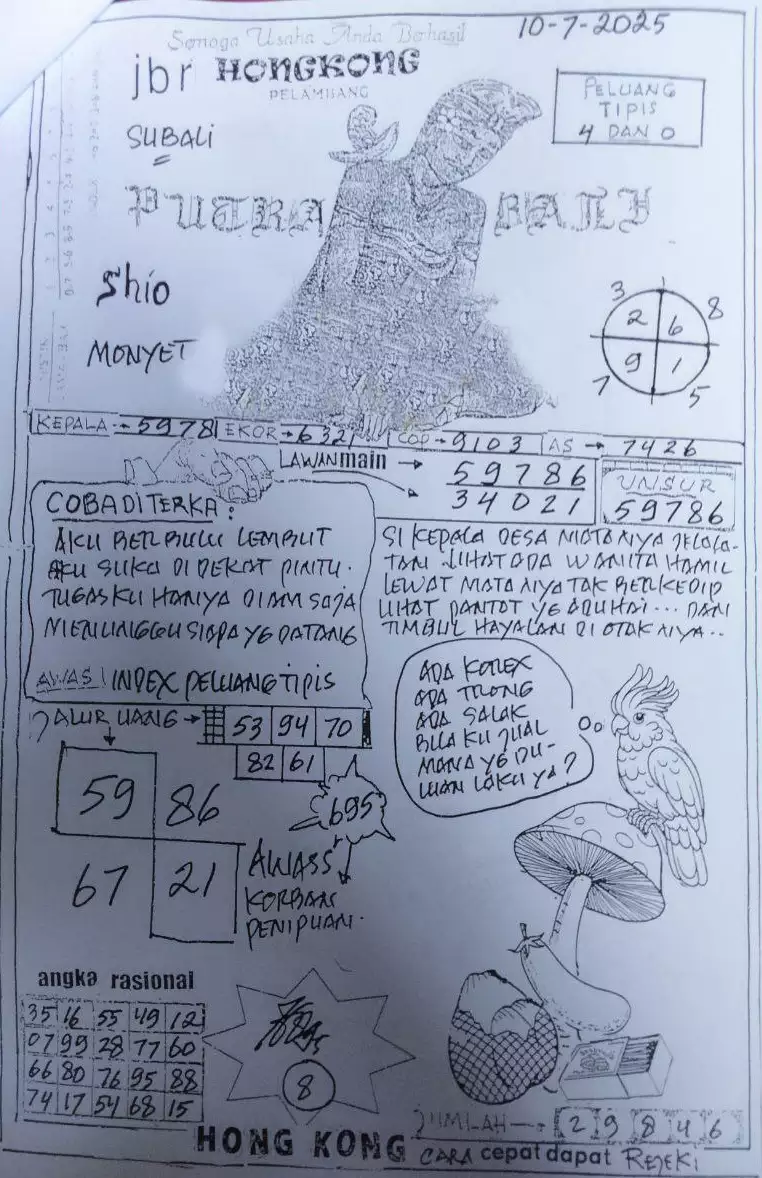 Semoga Usaha Anda Berhasil
10-7-2025
jbr HONGKONG
PELAMBANG
PELUANG
TIPIS
4 DAN 0
SUBALI
PUTRA BALI
Shio
MONYET
3 8
2 6
9 1
7 5
KEPALA → 5978 EKOR → 6321 COP → 9103 AS → 7426
LAWAN main → 59786
34021
UNSUR
59786
COBA DITERKA :
AKU BERBULU LEMBUT
AKU SUKA DI DEKAT PINTU.
TUGASKU HANYA DIAM SAJA
MENUNGGU SIAPA YG DATANG
AWAS! INDEX PELUANG TIPIS
SI KEPALA DESA MATANYA JELALA-
TAN LIHAT ADA WANITA HAMIL
LEWAT MATANYA TAK BERKEDIP
LIHAT PANTAT YG ADUHAI... DAN
TIMBUL HAYALAN DI OTAKNYA..
ADA KOTEX
ADA TRONG
ADA SALAK
BILA KU JUAL
MANA YG DU-
LUAN LAKU YA?
JALUR UANG → 53 94 70
82 61
59 86
67 21
695
AWASS
KORBAN
PENIPUAN.
angka rasional
35 16 55 49 12
07 99 28 77 60
66 80 76 95 88
74 17 54 68 15
8
JUMLAH → 2 9 8 4 6
HONG KONG CARA cepat dapat REJEKI